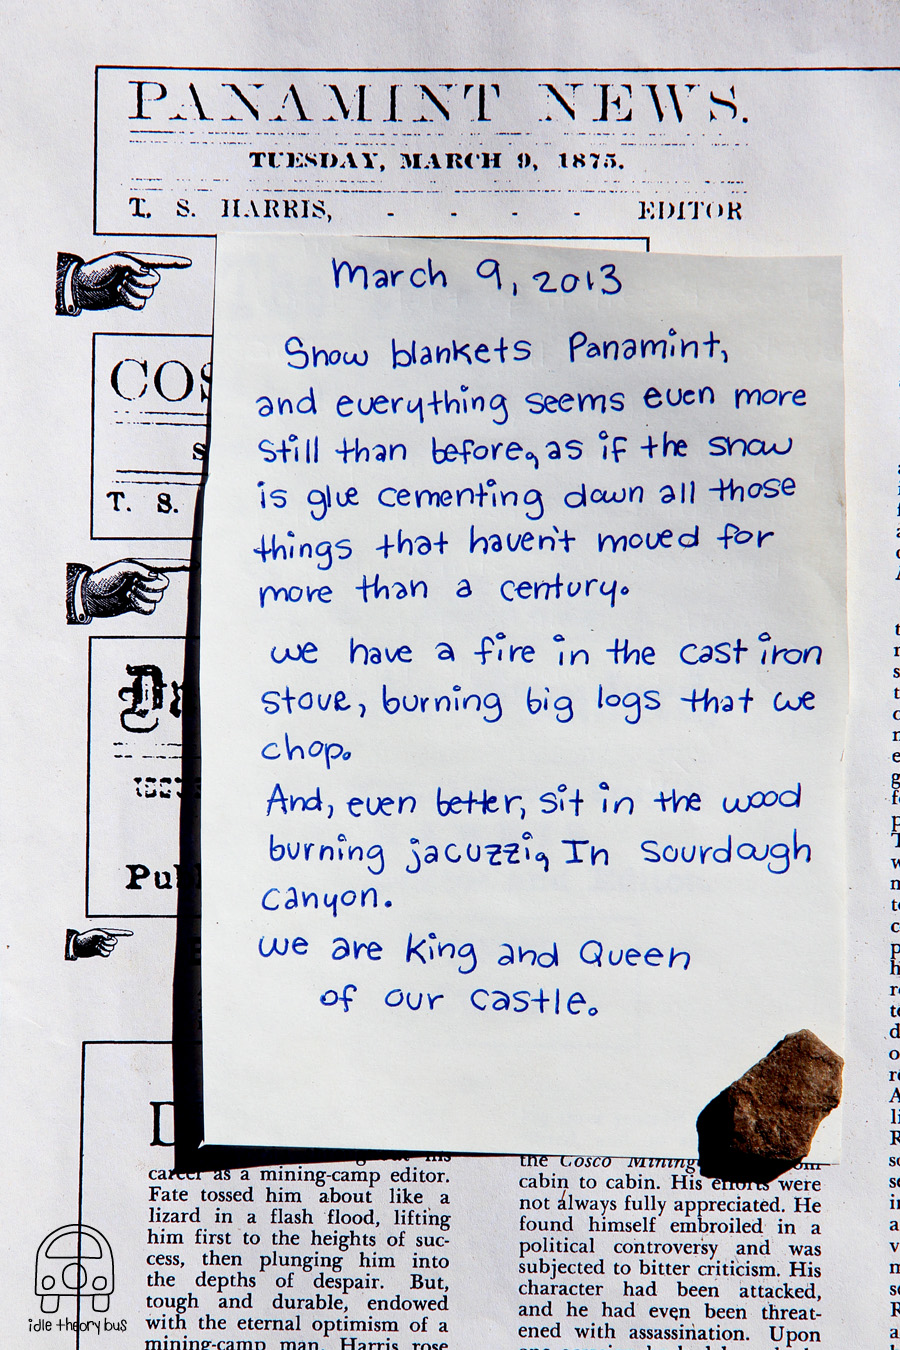 PANAMINT NEWS.
TUESDAY, MARCH 9, 1875.
T. S. HARRIS, - - - - EDITOR
March 9, 2013
Snow blankets Panamint,
and everything seems even more
still than before, as if the snow
is glue cementing down all those
things that haven't moved for
more than a century.
we have a fire in the cast iron
stove, burning big logs that we
chop.
And, even better, sit in the wood
burning jacuzzi, In Sourdough
canyon.
we are King and Queen
of our castle.
T. S.
career as a mining-camp editor.
Fate tossed him about like a
lizard in a flash flood, lifting
him first to the heights of suc-
cess, then plunging him into
the depths of despair. But,
tough and durable, endowed
with the eternal optimism of a
mining-camp man, Harris rose
the Cosco Mining
cabin to cabin. His efforts were
not always fully appreciated. He
found himself embroiled in a
political controversy and was
subjected to bitter criticism. His
character had been attacked,
and he had even been threat-
ened with assassination. Upon
idle theory bus